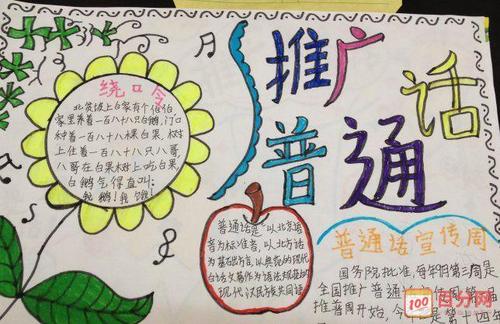 推广
普通话
绕口令
上白家有个伯伯
家里养着一百八十八只白鹅,门口
种着一百八十八棵白果,树
上住着一百八十八只八哥,
八哥在白果树上吃白果,
白鹅气得直叫:
我饿!我饿!
普通话是“以北京语
音为标准音,以北方话
为基础方言,以典范的现代
白话文著作为语法规范的
现代汉民族共同语
普通话宣传周
国务院批准,每年9月第三周是
全国推广普通
推普周开始,今 是第十四年
100
百分网